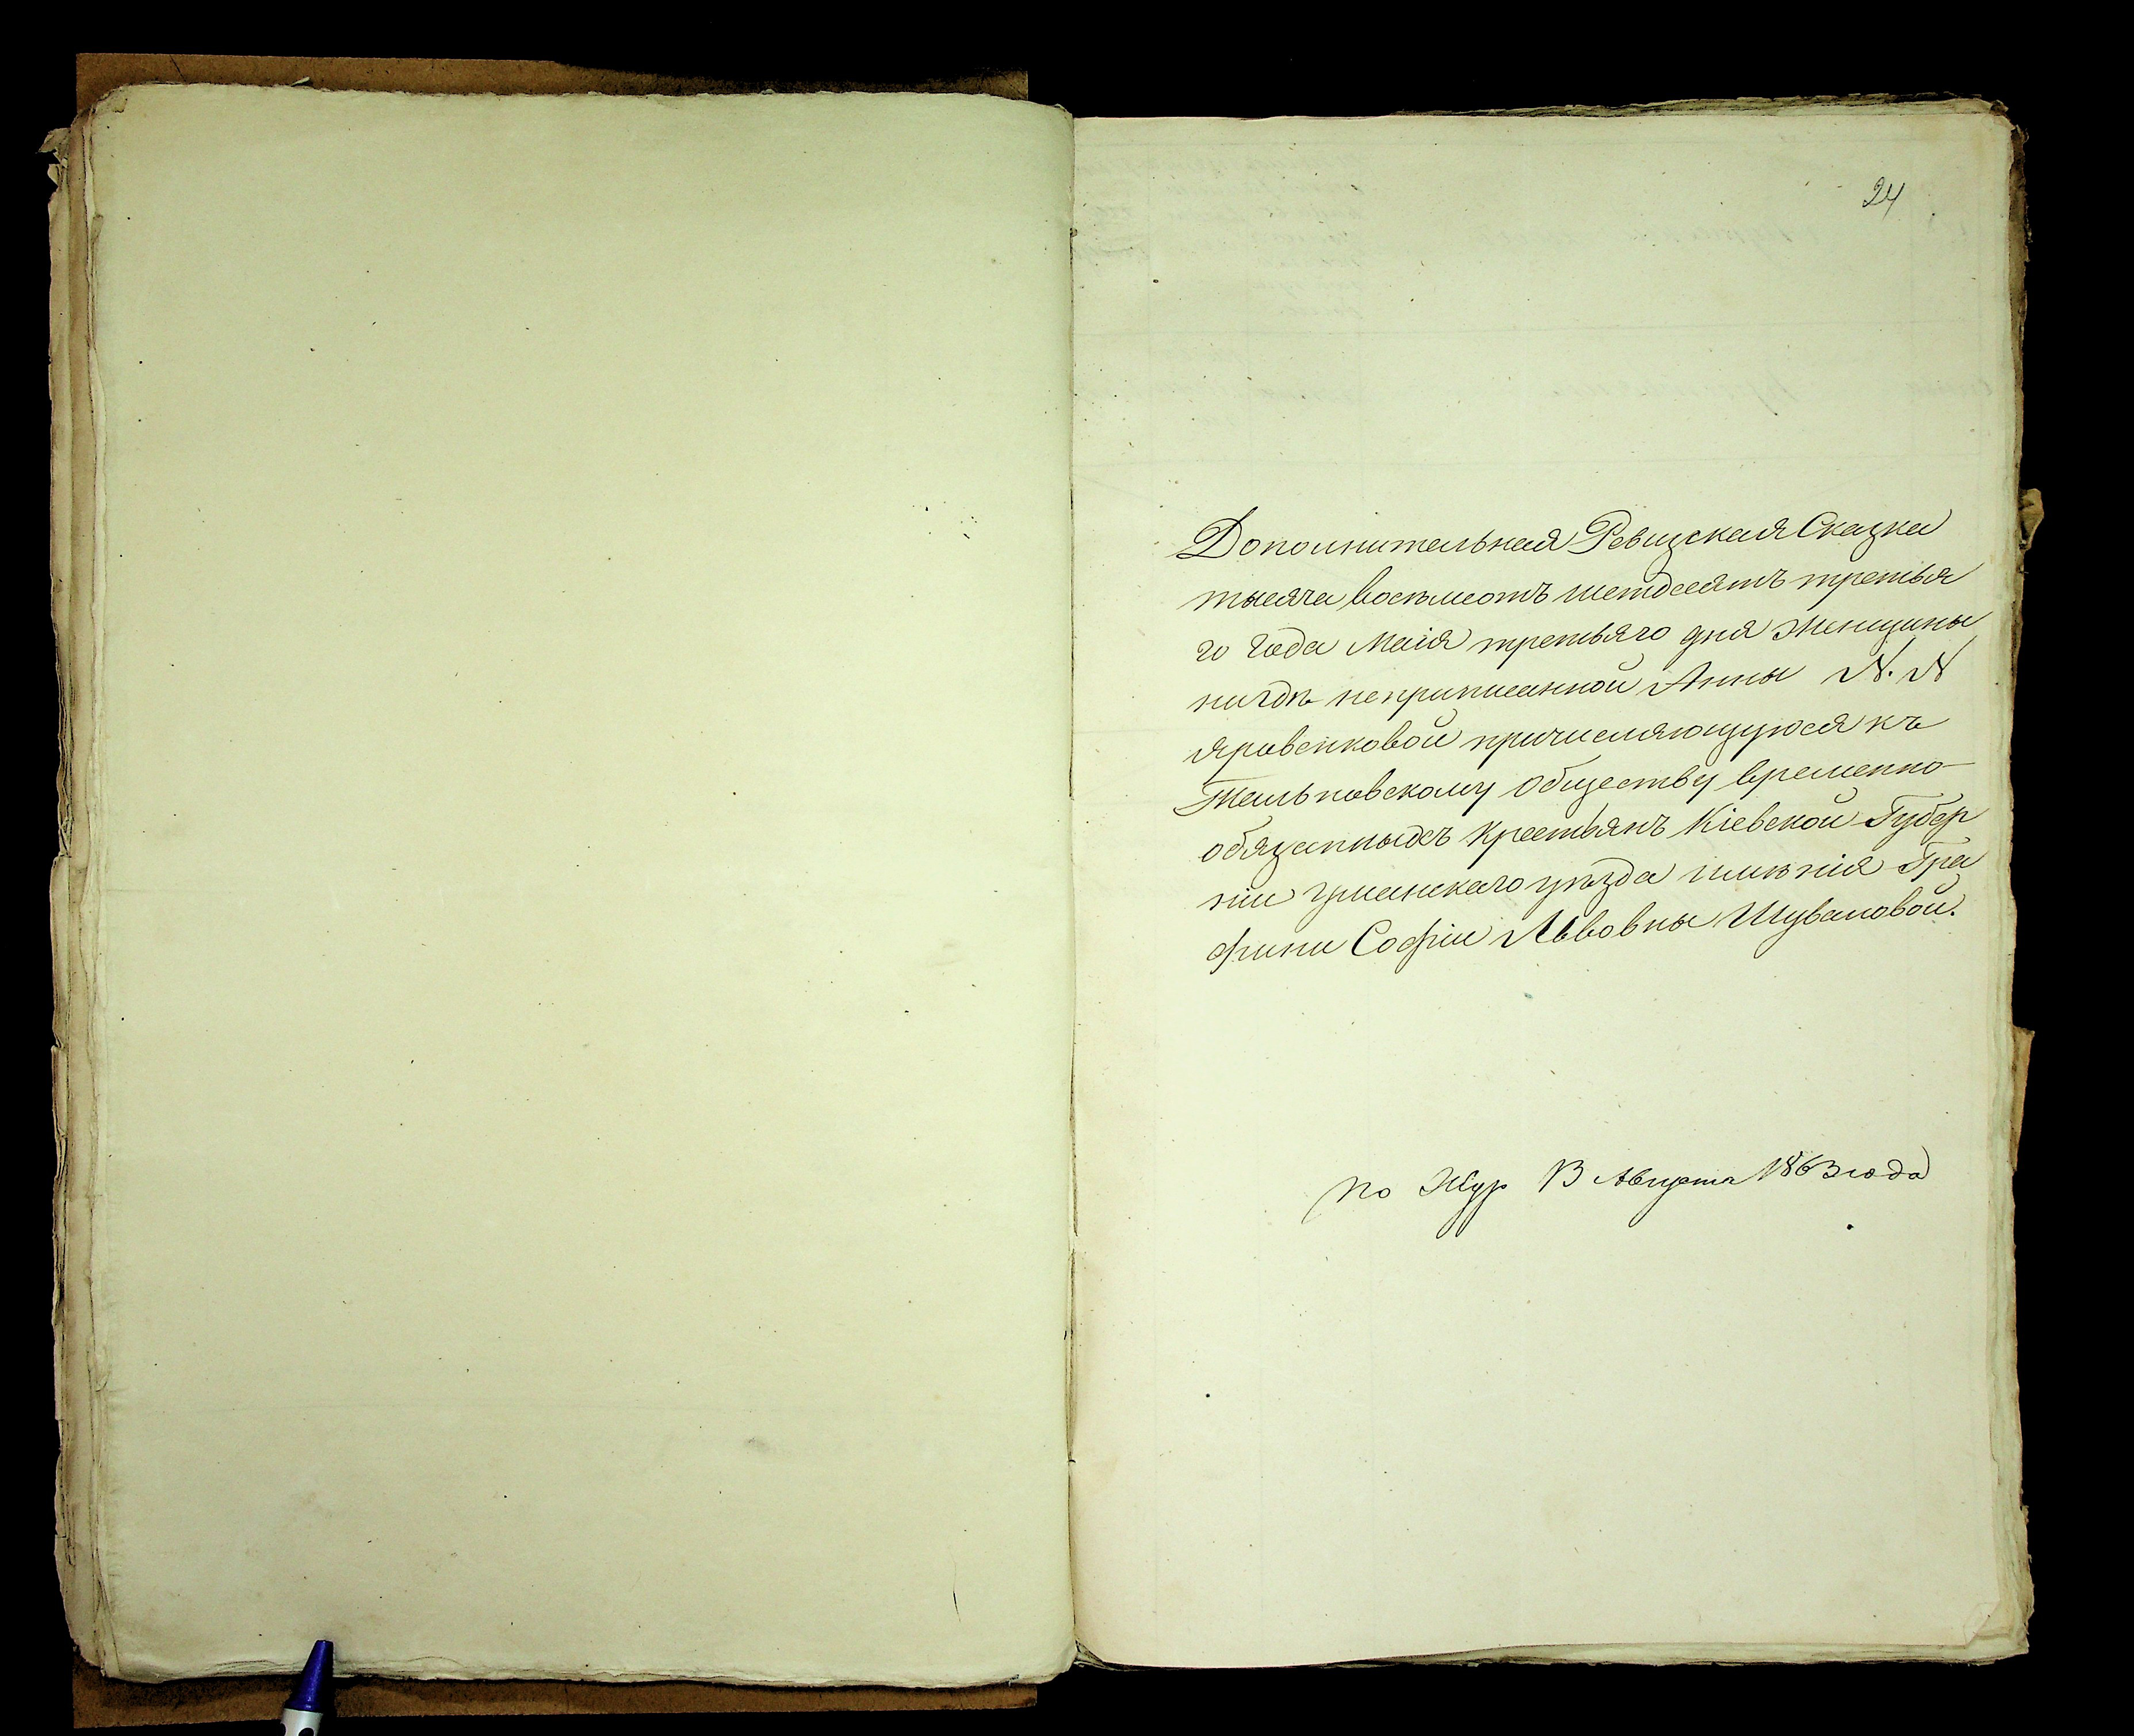 24
Дополнительная Ревизская Сказка
тысяча восемьсотъ шестдесятъ третья
го года Маія третьяго дня женщины
нигдѣ неприписанной Анны N. N
Яровенковой причисляющуюся къ
Тальновскому обществу временно-
обязанныхъ крестьянъ Кіевской Губер
ніи Уманскаго уѣзда имѣнія Гра
фини Софіи Львовны Шуваловой.
по Жур 13 Августа 1863 года